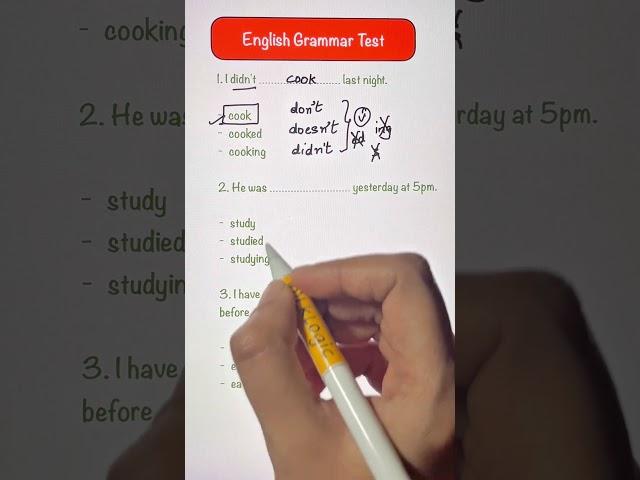 English Grammar Test
1. I didn't ........ cook ........ last night.
- cook
- cooked
- cooking
don't
doesn't
didn't
V
ing
ed
s
2. He was ........................ yesterday at 5pm.
- study
- studied
- studying
3. I have
before
cooking
2. He was
yesterday at 5pm.
- study
- studied
- studying
3. I have
before
logic